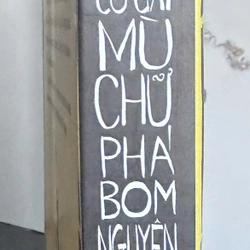 CÔ GÁI
MÙ
CHỮ
PHÁ
BOM
NGUYÊN